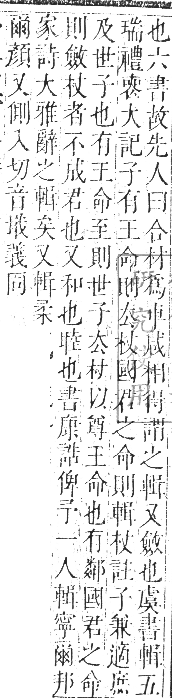 也六書故先人曰合材爲車咸相得謂之輯又斂也虞書輯五
瑞禮喪大記子有王命則去杖國君之命則輯杖註子兼適庶
及世子也有王命至則世子去杖以尊王命也有鄰國君之命
則斂杖者不成君也又和也睦也書康誥俾予一人輯寧爾邦
家詩大雅辭之輯矣又輯柔
爾顏又側入切音戢義同